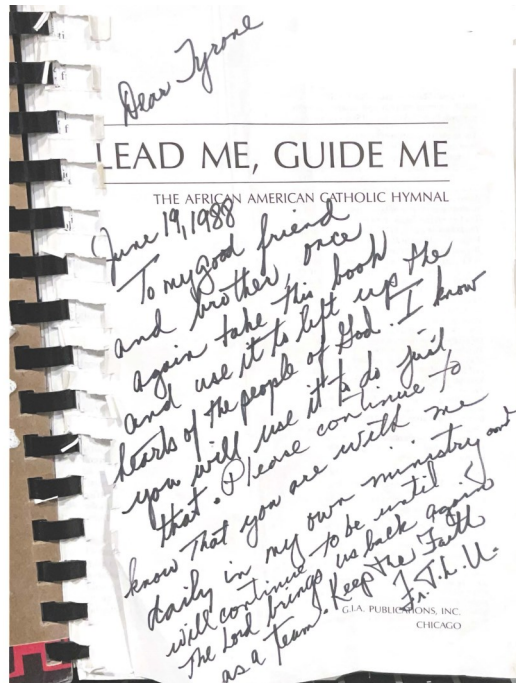 Dear Tyrone
LEAD ME, GUIDE ME
THE AFRICAN AMERICAN CATHOLIC HYMNAL
June 19, 1988
To my good friend
and brother, once
again take this book
and use it to lift up the
hearts of the people of God. I know
you will use it to do just
that. Please continue to
know That you are with me
daily in my own ministry and
will continue to be until
The Lord brings us back again
as a team. Keep The Faith
Fr. T. L. U.
G.I.A. PUBLICATIONS, INC.
CHICAGO